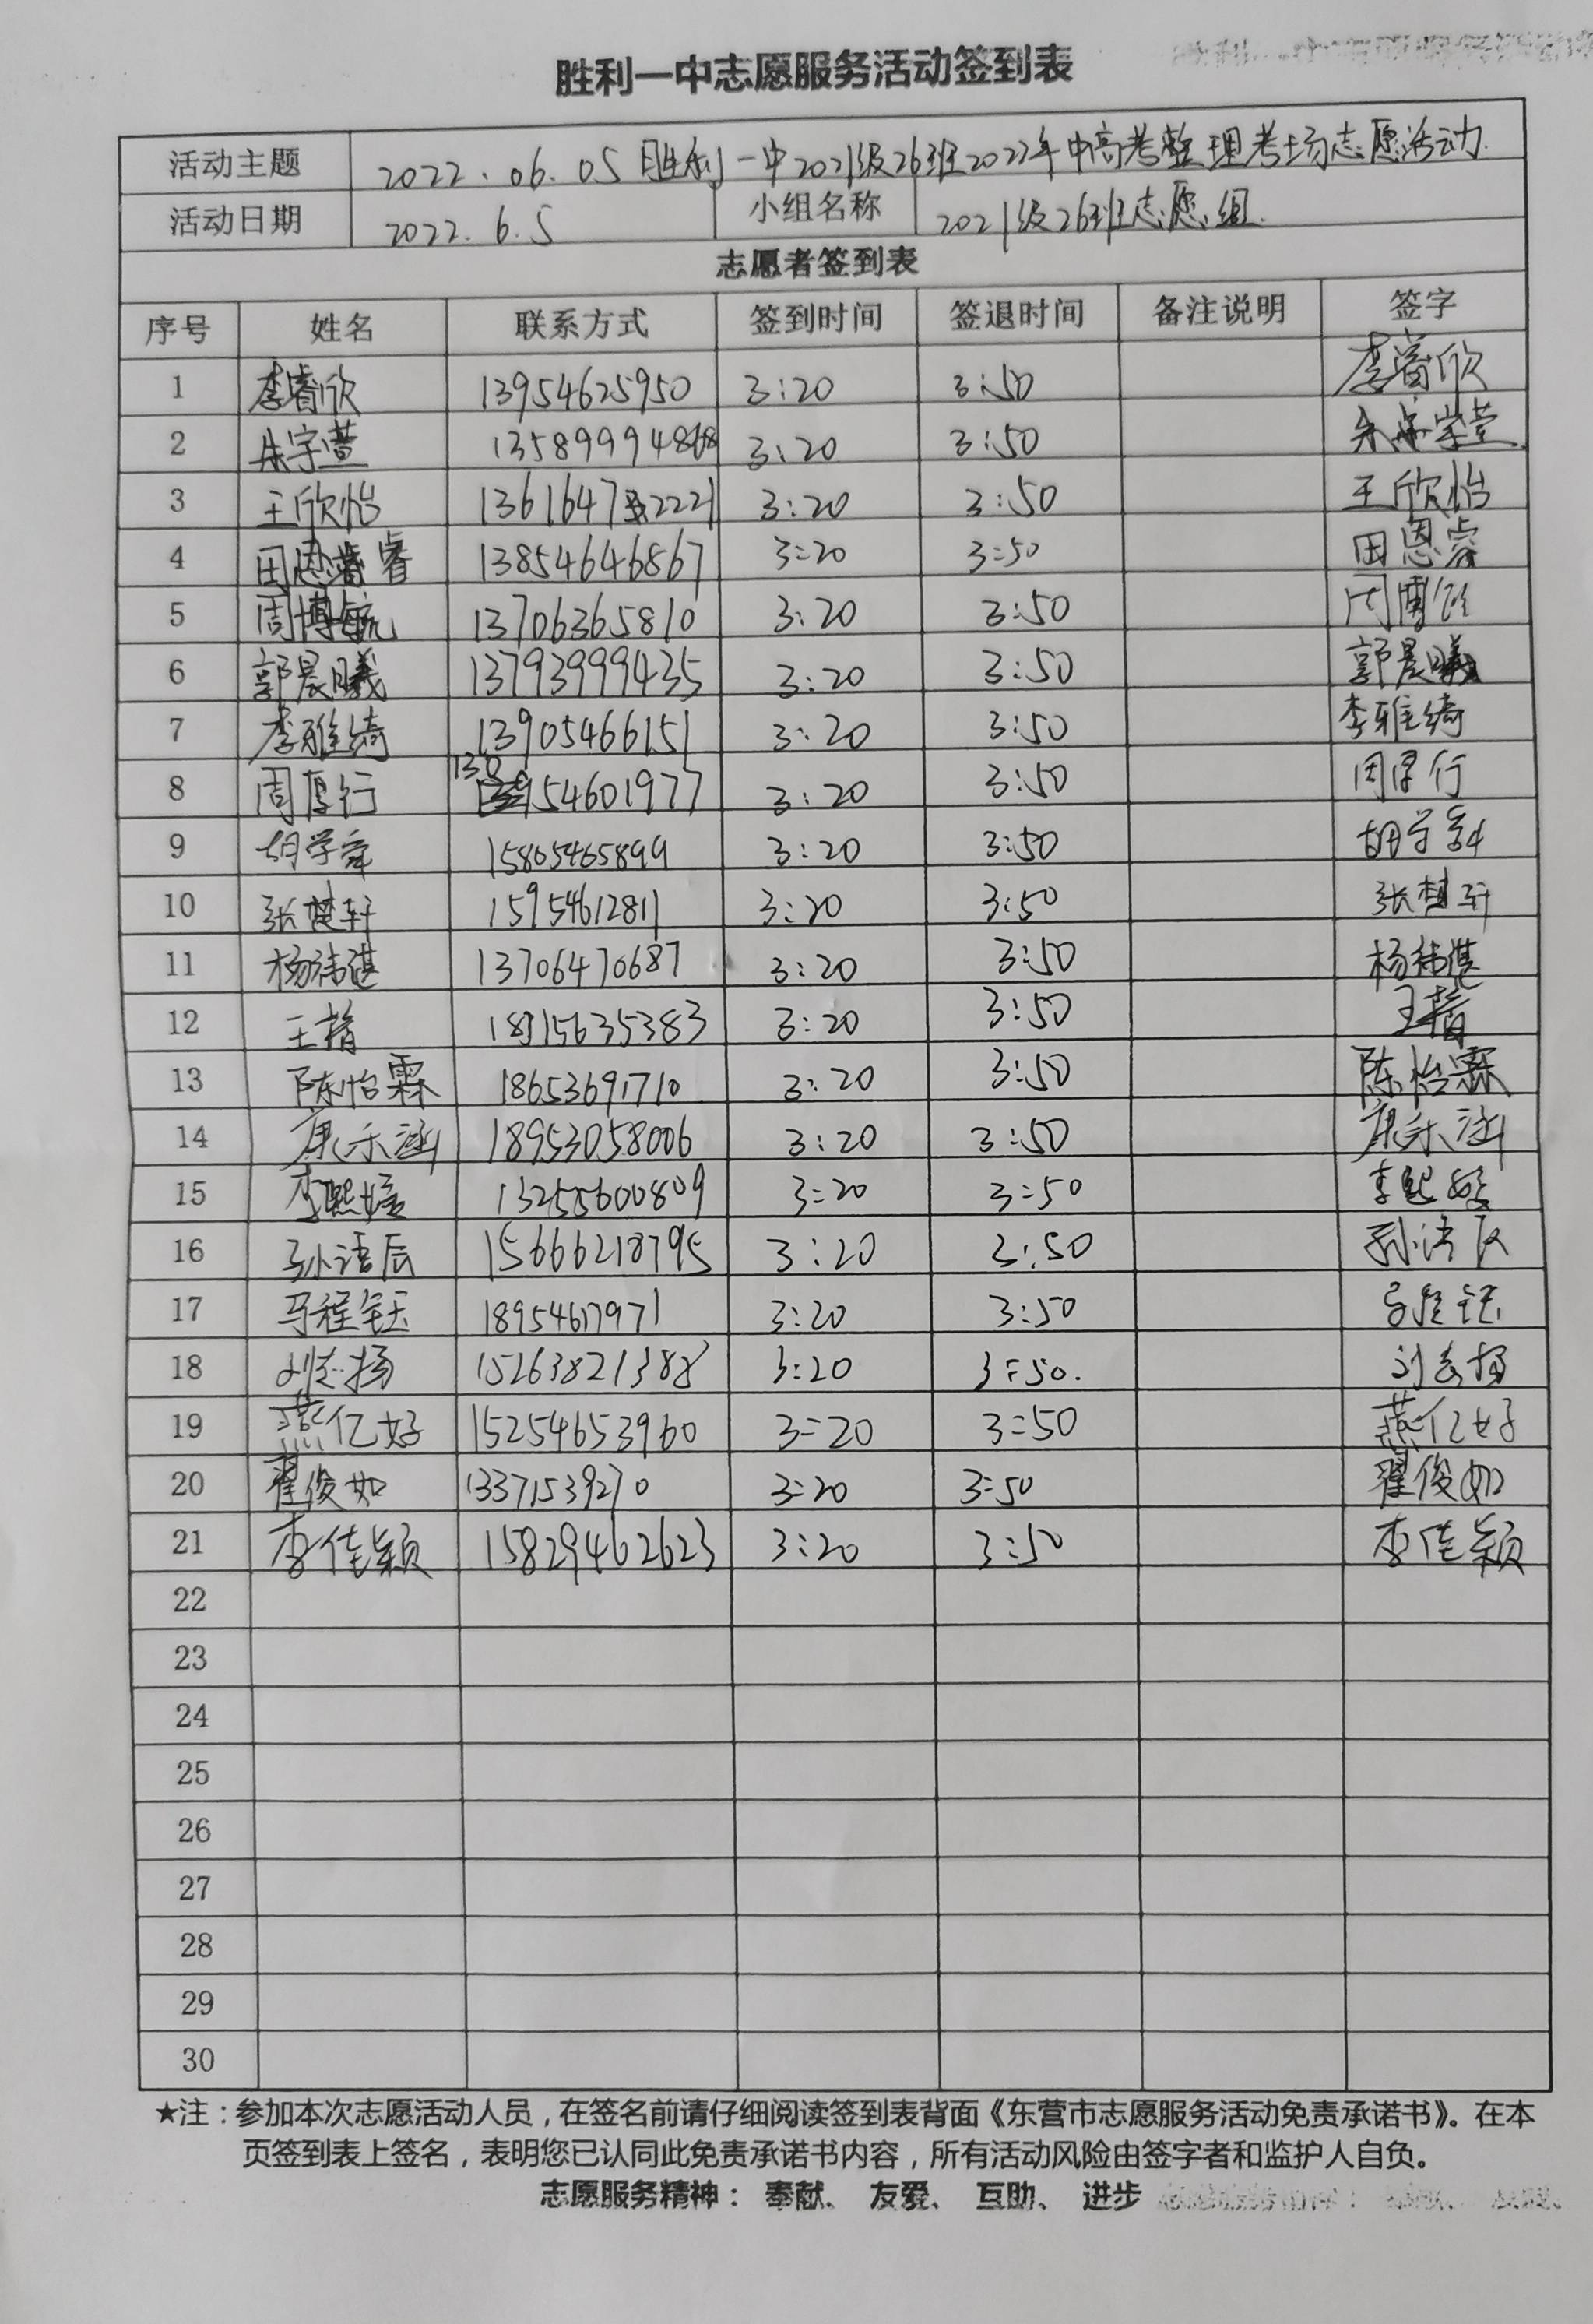 胜利一中志愿服务活动签到表
活动主题 2022.06.05胜利一中2021级26班2022年中高考整理考场志愿活动
活动日期 2022.6.5 小组名称 2021级26班志愿组
志愿者签到表
序号 姓名 联系方式 签到时间 签退时间 备注说明 签字
1 李睿欣 13954625950 3:20 3:50 李睿欣
2 朱宇萱 3:20 3:50
3 王欣怡 3:20 3:50 王欣怡
4 田恩睿 13854646867 3:20 3:50 田恩睿
5 周博航 13706365810 3:20 3:50
6 郭晨曦 13793999435 3:20 3:50 郭晨曦
7 李雅绮 13905466151 3:20 3:50 李雅绮
8 周厚行 13054601977 3:20 3:50 周厚行
9 胡学 15865465899 3:20 3:50 胡学
10 张楚轩 15954612811 3:20 3:50 张楚轩
11 杨祎湛 13706470687 3:20 3:50 杨祎湛
12 王 3:20 3:50 王
13 陈怡霖 18653691710 3:20 3:50 陈怡霖
14 康乐涵 18953058006 3:20 3:50 康乐涵
15 李熙媛 13255600809 3:20 3:50 李熙媛
16 孙语辰 15666218795 3:20 3:50 孙语辰
17 马程钰 18954617971 3:20 3:50 马程钰
18 刘志扬 15263821388 3:20 3:50. 刘志扬
19 燕亿好 15254653960 3:20 3:50 燕亿好
20 翟俊如 13371539270 3:20 3:50 翟俊如
21 李佳颖 15829462623 3:20 3:50 李佳颖
22
23
24
25
26
27
28
29
30
★注：参加本次志愿活动人员，在签名前请仔细阅读签到表背面《东营市志愿服务活动免责承诺书》。在本
页签到表上签名，表明您已认同此免责承诺书内容，所有活动风险由签字者和监护人自负。
志愿服务精神： 奉献、 友爱、 互助、 进步